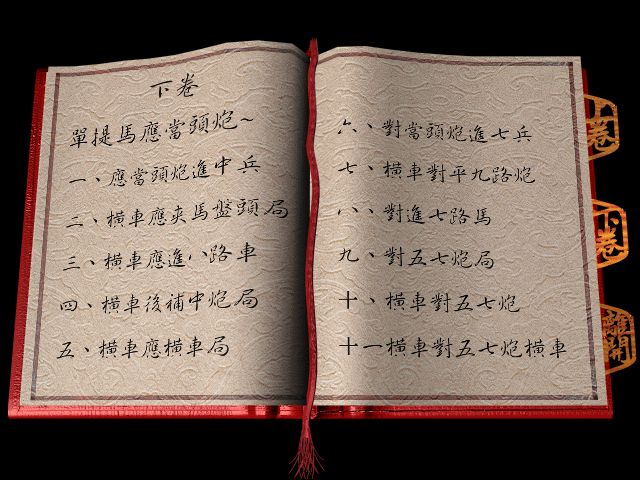 下卷
單提馬應當頭炮~
一、應當頭炮進中兵
二、橫車應夾馬盤頭局
三、橫車應進八路車
四、橫車後補中炮局
五、橫車應橫車局
六、對當頭炮進七兵
七、橫車對平九路炮
八、對進七路馬
九、對五七炮局
十、橫車對五七炮
十一橫車對五七炮橫車
上卷
下卷
離開